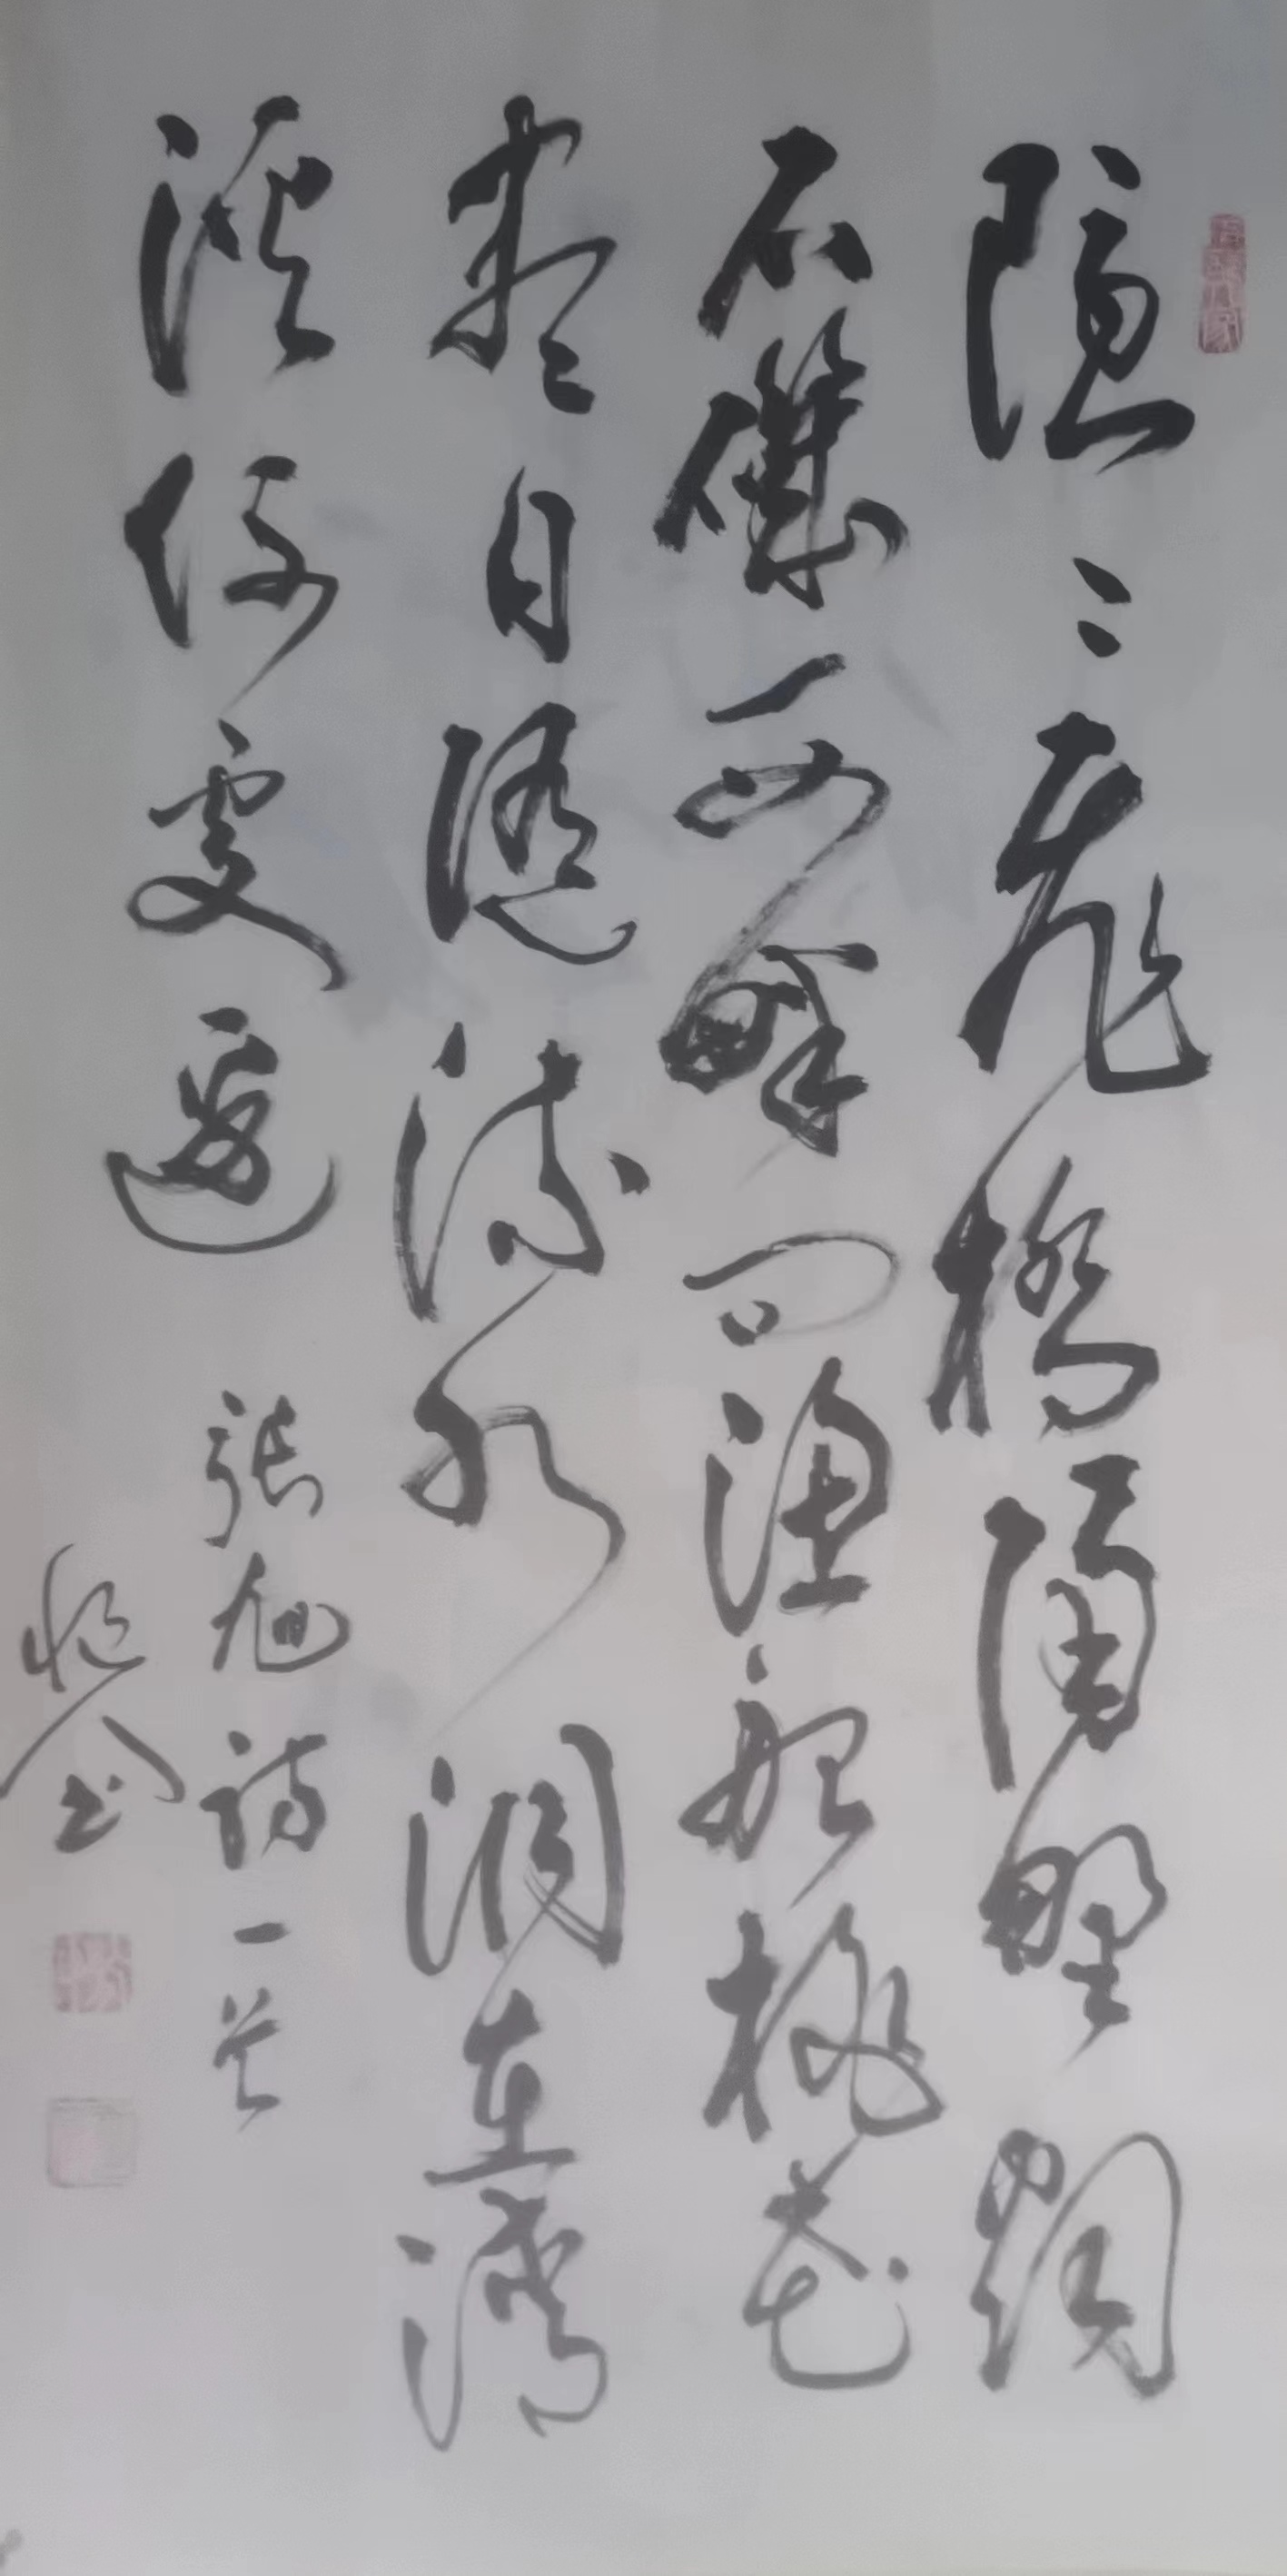 隱〻飛橋隔野烟
石磯西畔问渔船桃花
盡日隨流水洞在清
溪何處邊 張旭詩一首
书